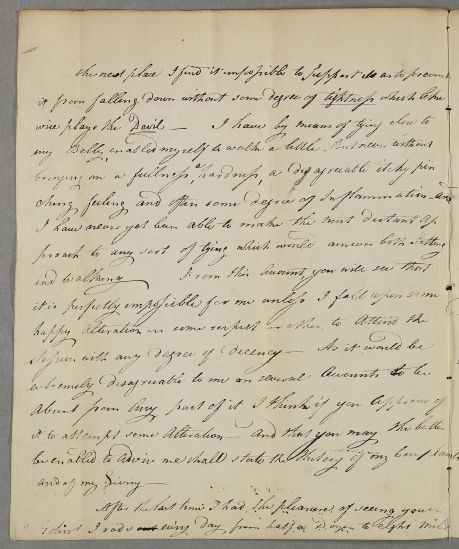 the next place I find it impossible to support it so as to prevent
it from falling down without some degree of tightness which like
wise plays the Devil — I have by means of tying close to
my Belly, enabled myself to walk a little. But never without
bringing on a fullness, a hardness, a disagreable itchy pin
ching feeling and often some degree of Inflammation and
I have never yet been able to make the most distant ap
proach to any sort of tying which would answer both sitting
and walking From this Account, you will see that
it is perfectly impossible for me unless I fall upon some
happy Alteration in some respect or other, to Attend the
Session with any degree of decency — As it would be
extremely disagreuable to me on several Accounts to be
Absent from every part of it I think if you Approve of
it to attempt some Alteration — And that you may the better
be enabled to advise me shall state the History of my Complaint
and of my living —
After the last time I had the pleasure of seeing you in
Edinr I rode every day from half a dozen to eight miles